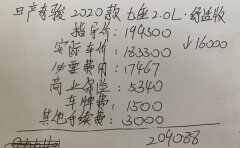 日产奇骏 2020款 七座2.0L·舒适版
指导价: 194300
实际车价: 183300 ↓16000
必要费用: 17467
商业保险: 5340
车牌费: 1500
其他手续费: 3000
204088